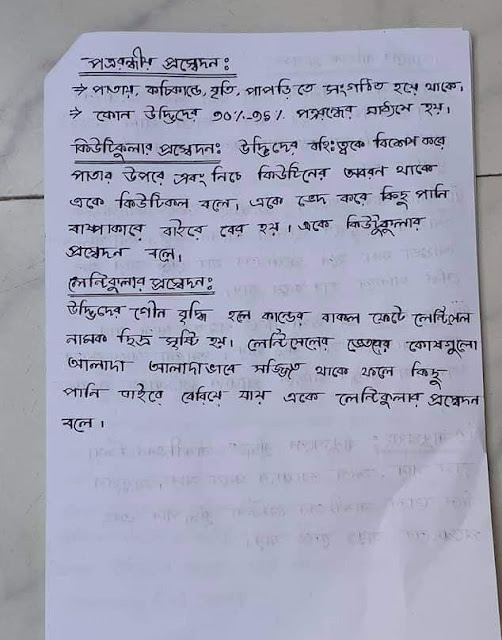 পত্ররন্ধ্রীয় প্রস্বেদন:
⇒ পাতায়, কচিকান্ডে, বৃতি, পাপড়িতে সংগঠিত হয়ে থাকে.
⇒ কোন উদ্ভিদের ৯০%-৯৫% পত্ররন্ধ্রের মাধ্যমে হয়।
কিউটিকুলার প্রস্বেদন: উদ্ভিদের বহি:ত্বকে বিশেষ করে
পাতার উপরে এবং নিচে কিউটিনের আবরন থাকে
একে কিউটিকল বলে। একে ভেদ করে কিছু পানি
বাষ্পাকারে বাইরে বের হয়। একে কিউটুকুলার
প্রস্বেদন বলে।
লেন্টিকুলার প্রস্বেদন:
উদ্ভিদের গৌন বৃদ্ধি হলে কান্ডের বাকল ফেটে লেন্টিসেল
নামক ছিদ্র সৃষ্টি হয়। লেন্টিসেলের ভেতরের কোষগুলো
আলাদা আলাদাভাবে সজ্জিত থাকে ফলে কিছু
পানি বাইরে বেরিয়ে যায় একে লেন্টিকুলার প্রস্বেদন
বলে।